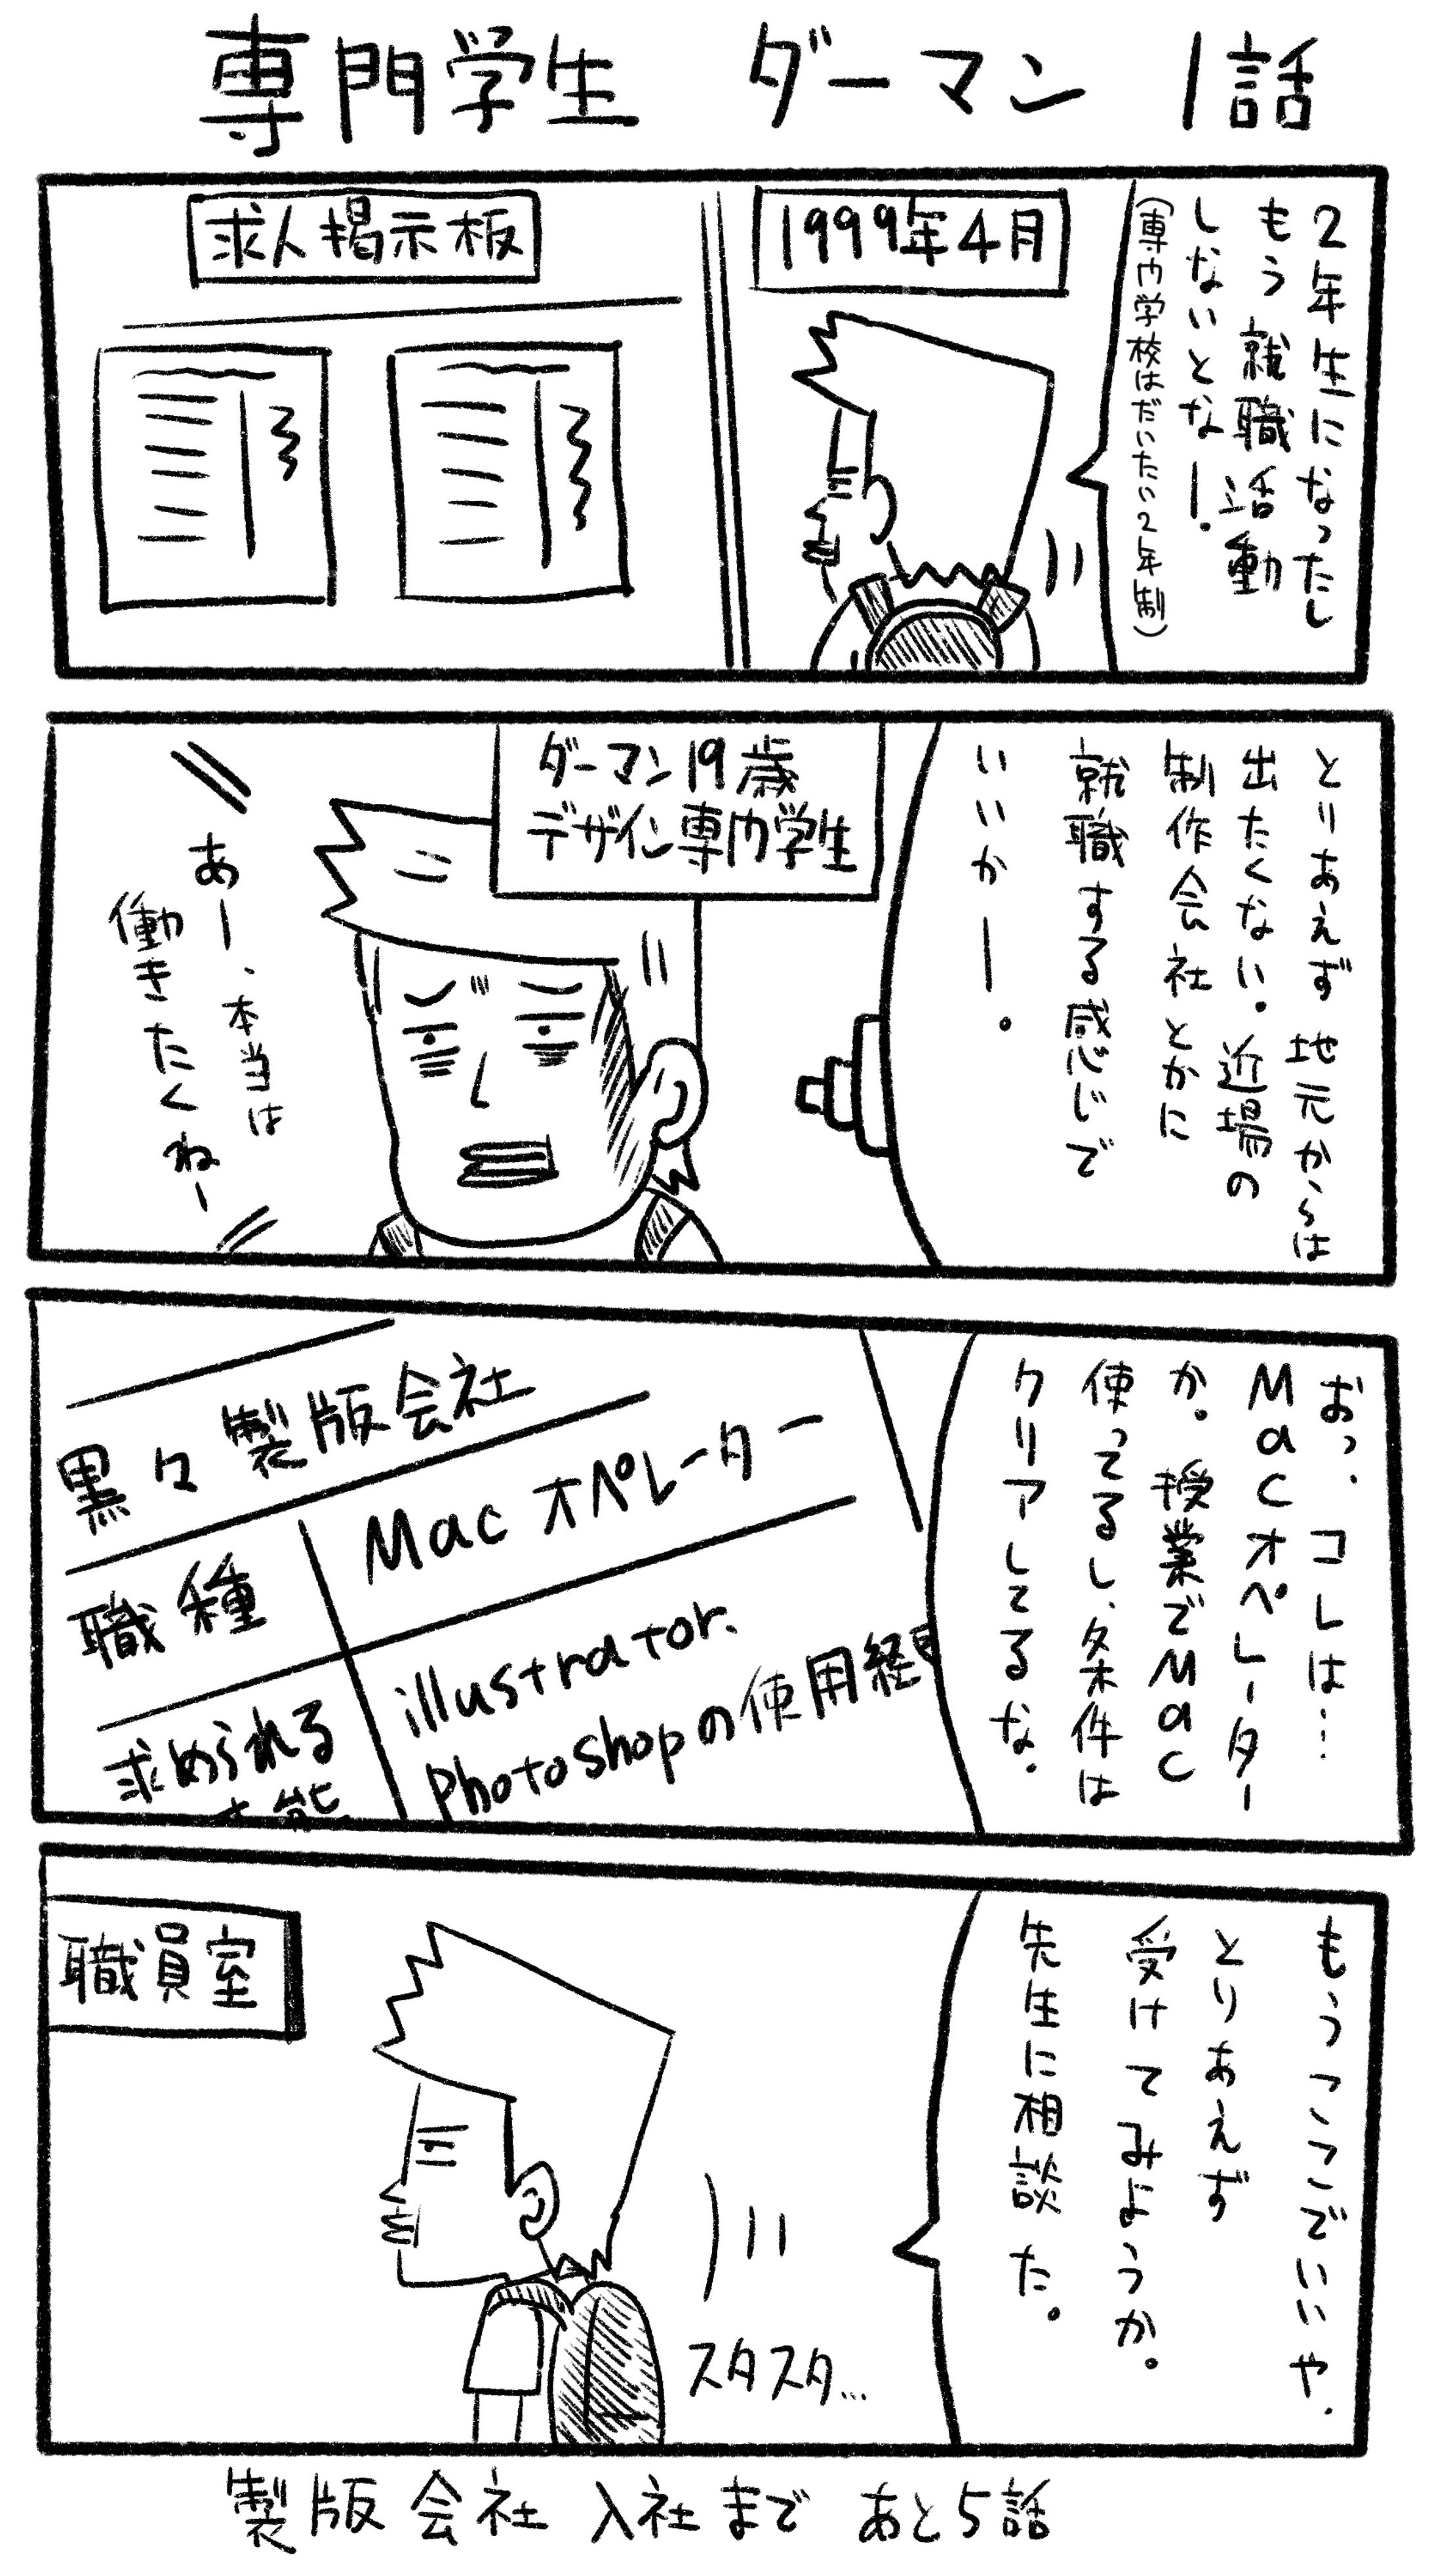 専門学生 ダーマン 1話
2年生になったし
もう就職活動
しないとなー。
(専門学校はだいたい2年制)
1999年4月
求人掲示板
とりあえず地元からは
出たくない。近場の
制作会社とかに
就職する感じで
いいかー。
ダーマン19歳
デザイン専門学生
あー、本当は
働きたくねー
おっ、コレは…
Macオペレーター
か。授業でMac
使ってるし、条件は
クリアしてるな。
黒々製版会社
職種
Macオペレーター
求められる
illustrator.
Photoshopの使用経
もうここでいいや.
とりあえず
受けてみようか。
先生に相談た。
職員室
スタスタ…
製版会社入社まで あと5話